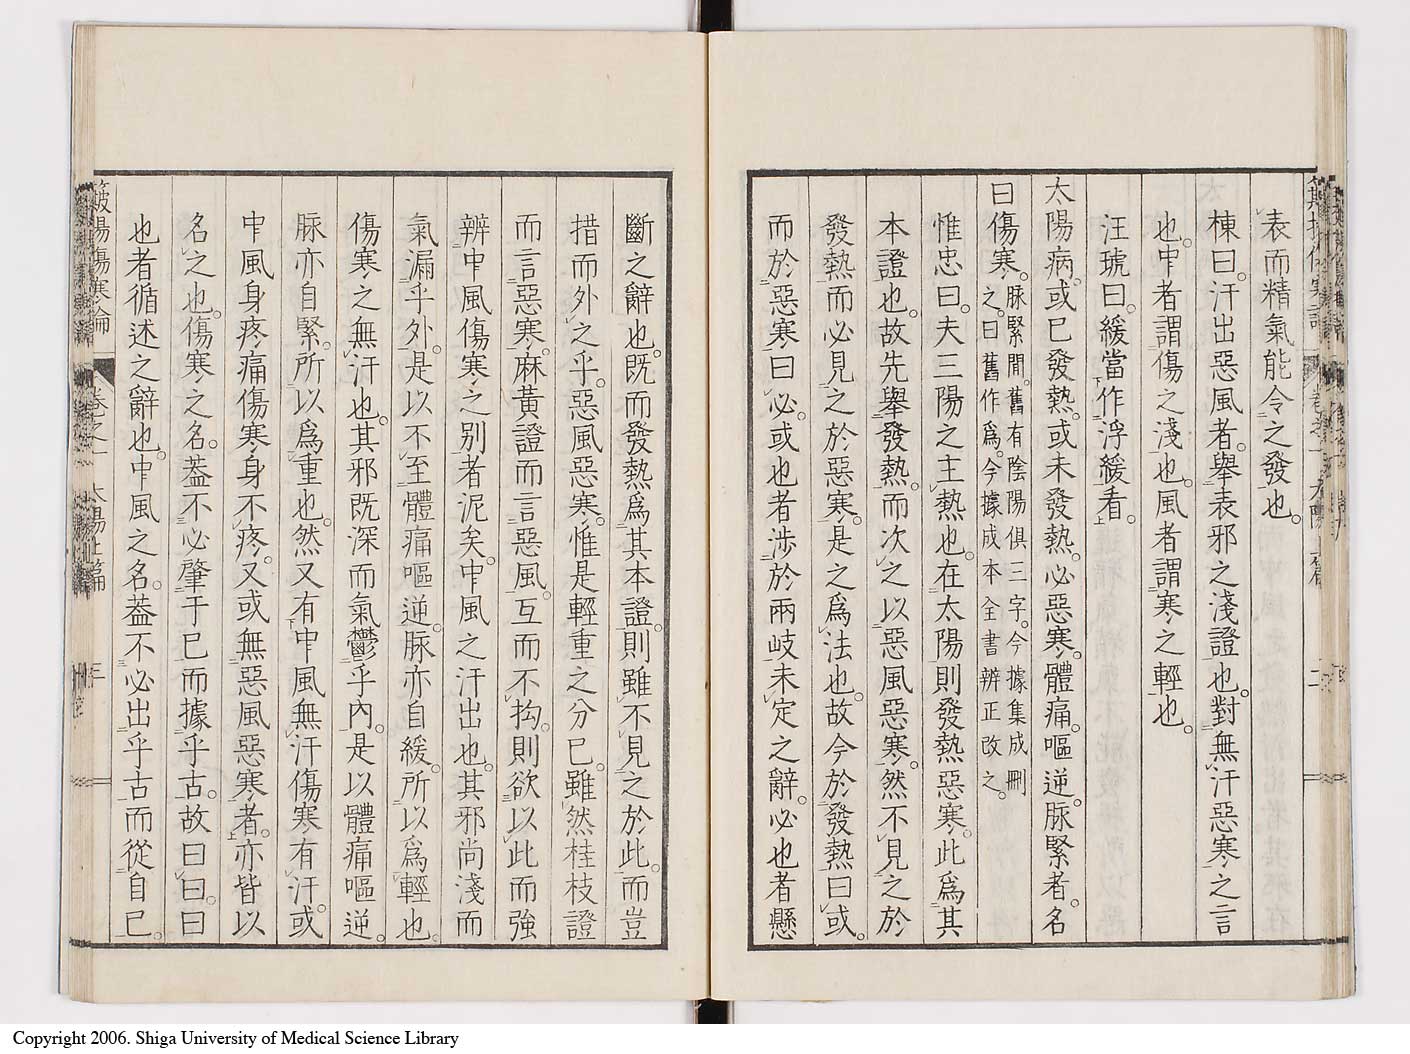 表而精氣能令之發也。
棟曰。汗出惡風者。舉表邪之淺證也。對無汗惡寒之言
也。中者謂傷之淺也。風者謂寒之輕也。
汪琥曰。緩當作浮緩看。
太陽病。或已發熱。或未發熱。必惡寒。體痛。嘔逆。脈緊者。名
曰傷寒。脈緊間。舊有陰陽俱三字。今據集成刪
之。曰舊作爲。今據成本全書辨正改之。
惟忠曰。夫三陽之主熱也。在太陽則發熱惡寒。此爲其
本證也。故先舉發熱。而次之以惡風惡寒。然不見之於
發熱而必見之於惡寒。是之爲法也。故今於發熱曰或。
而於惡寒曰必。或也者涉於兩岐未定之辭。必也者懸
斷之辭也。既而發熱爲其本證。則雖不見之於此。而豈
措而外之乎。惡風惡寒。惟是輕重之分已。雖然桂枝證
而言惡寒。麻黃證而言惡風。互而不拘。則欲以此而強
辨中風傷寒之別者泥矣。中風之汗出也。其邪尚淺而
氣漏乎外。是以不至體痛嘔逆。脈亦自緩。所以爲輕也。
傷寒之無汗也。其邪既深而氣鬱乎內。是以體痛嘔逆。
脈亦自緊。所以爲重也。然又有中風無汗傷寒有汗。或
中風身疼痛傷寒身不疼。又或無惡風惡寒者。亦皆以
名之也。傷寒之名。蓋不必肇于已而據乎古。故曰曰。曰
也者循述之辭也。中風之名。蓋不必出乎古而從自已。
傷寒論
卷之一 太陽上篇
三